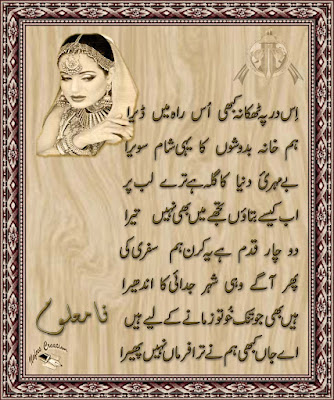 اِس در پہ ٹھکانہ کبھی اُس راہ میں ڈیرا
ہم خانہ بدوشوں کا یہی شام سویرا
بے مہریٔ دنیا کا گلہ ہے ترے لب پر
اب کیسے بتاؤں تجھے میں بھی نہیں تیرا
دو چار قدم ہے یہ کرن ہم سفری کی
پھر آگے وہی شہر جدائی کا اندھیرا
ہیں بھی جو تنک خُو تو زمانے کے لیے ہیں
اے جاں کبھی ہم نے ترا فرماں نہیں پھیرا
نامعلوم
Creation